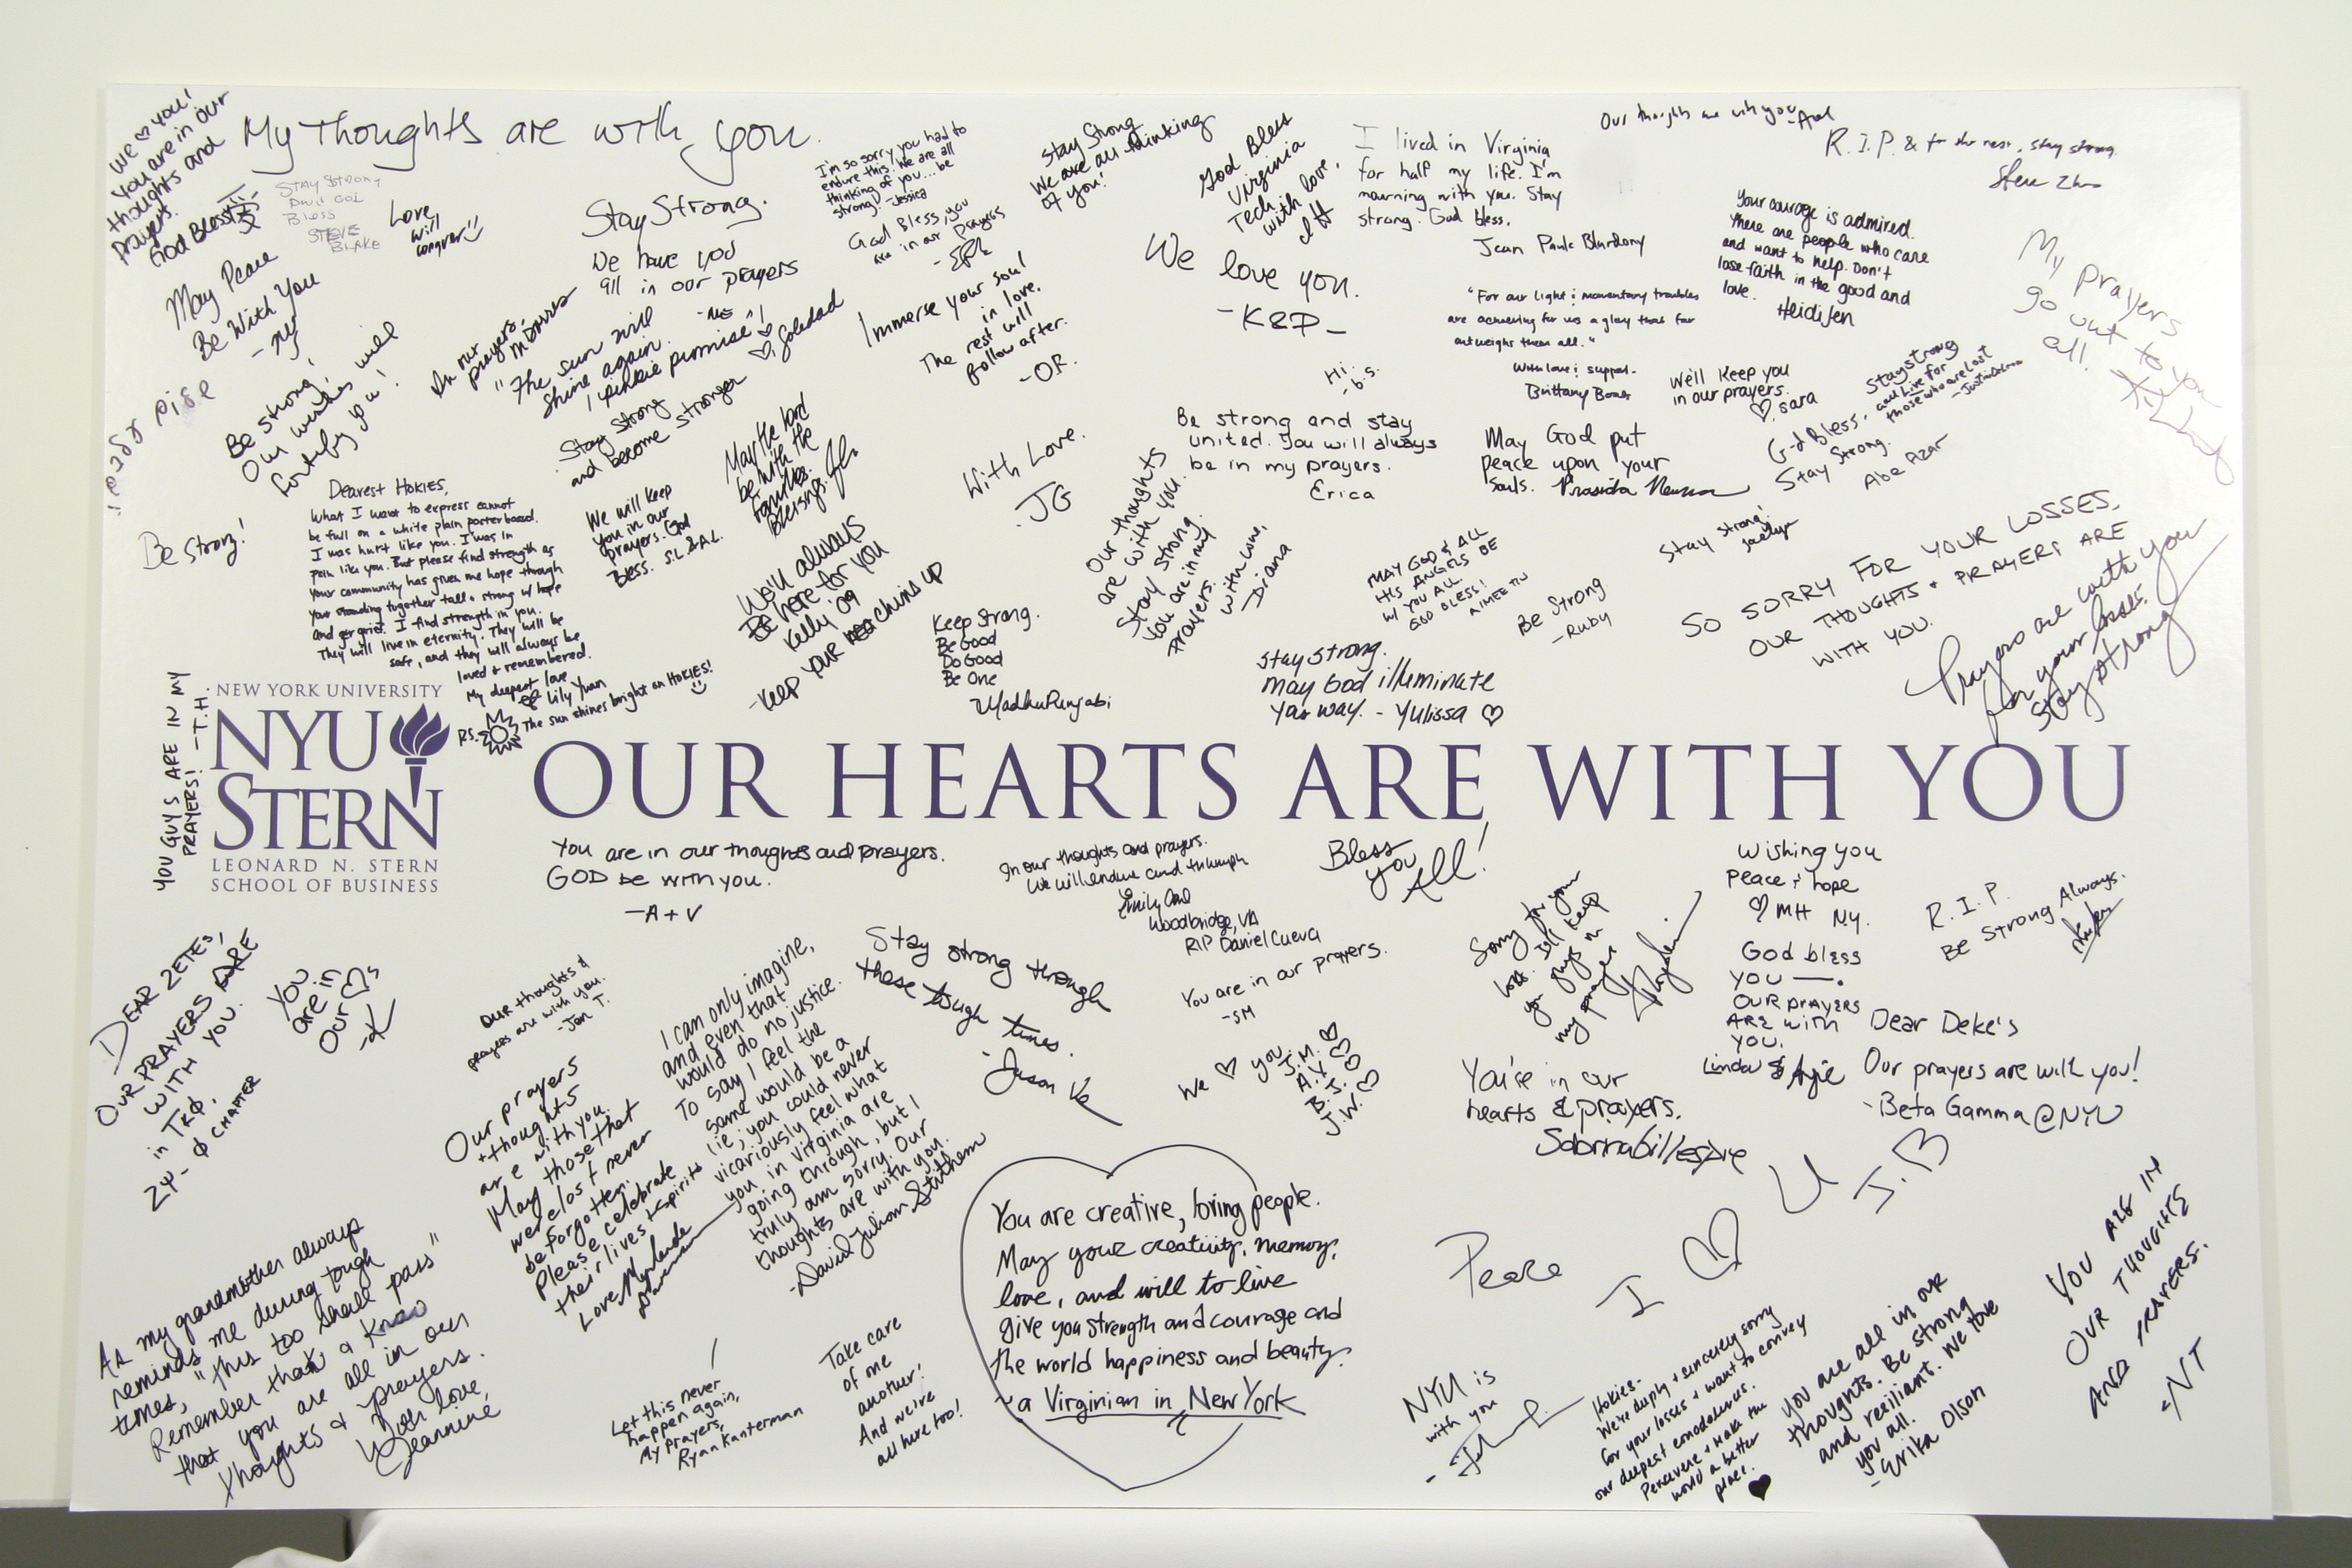 We ♡ you!
You are in our
thoughts and
prayers.
God Bless
My Thoughts are with you.
STAY STRONG
GOD
BLESS
STEVE
BLAKE
Love
will
conquer
May Peace
Be With You
Be strong!
Our wishes will
fortify you!
Be strong!
Stay Strong.
We have you
all in our prayers
- ME
In our
prayers,
"The sun will
shine again.
I pinkie promise"!
♡, Soledad
Stay Strong
and become stronger
I'm so sorry you had to
endure this. We are all
thinking of you... be
strong! -Jessica
God Bless, you
are in our prayers
Immerse your soul
in love.
The rest will
follow after.
-OR.
Stay Strong
We are all thinking
of you!
God Bless
Virginia
Tech.
with love,
We love you.
- K&P -
I lived in Virginia
for half my life. I'm
mourning with you. Stay
strong. God bless.
Jean Paule Blardony
"For our light & momentary troubles
are achieving for us a glory that far
outweighs them all."
With love & support-
Brittany
Our thoughts are with you
R.I.P. & to the rest, stay strong.
Your courage is admired.
There are people who care
and want to help. Don't
lose faith in the good and
love.
Heidi Jen
My prayers
go out to you
all!
We'll keep you
in our prayers.
♡ sara
Stay strong
and live for
those who are lost
G-d Bless,
Stay Strong.
Abe Azar
Hi.
- b.s.
Be strong and stay
united. You will always
be in my prayers.
Erica
May God put
peace upon your
souls.
With Love.
- JG
May the lord
be with the
families.
Blessings.
We will keep
you in our
prayers. God
Bless. S.L & A.L.
Dearest HOKIES,
What I want to express cannot
be full on a white plain posterboard.
I was hurt like you. I was in
pain like you. But please find strength as
your community has given me hope through
your standing together tall & strong w/ hope
and for grief. I find strength in you.
They will live in eternity. They will be
safe, and they will always be
loved & remembered.
My deepest love
Lily Yuan
P.S. The sun shines bright on HOKIES!
We'll always
Be here for you
Kelly '09
-Keep your chins up
Keep Strong.
Be Good
Do Good
Be One
Madhu Punjabi
Our thoughts
are with you.
Stay strong.
You are in my
prayers.
with love,
-Diana
MAY GOD & ALL
HIS ANGELS BE
W/ YOU ALL.
GOD BLESS!
AIMEE
Be Strong
-Ruby
Stay Strong!
Jaclyn
SO SORRY FOR YOUR LOSSES,
OUR THOUGHTS + PRAYERS ARE
WITH YOU.
Prayers are with you
for your losses.
Stay strong
Stay strong.
May God illuminate
your way. - Yulissa ♡
YOU GUYS ARE IN MY
PRAYERS! -T.H.
NEW YORK UNIVERSITY
NYU
STERN
LEONARD N. STERN
SCHOOL OF BUSINESS
OUR HEARTS ARE WITH YOU
You are in our thoughts and prayers.
GOD be with you.
-A + V
In our thoughts and prayers.
We will endure and triumph
Woodbridge, VA
RIP Daniel Cueva
Bless
you
All!
Wishing you
Peace & hope
♡ MH N.Y.
R.I.P.
Be Strong Always.
Sorry for your
loss. I'll keep
you guys in
my prayers
God bless
you —.
OUR PRAYERS
ARE WITH
YOU.
Linda &
Dear Deke's
Our prayers are with you!
-Beta Gamma @ NYU
DEAR ZETES,
OUR PRAYERS ARE
WITH YOU.
in TKΦ,
ZΨ - Φ CHAPTER
You
are in
our ♡s
-K
Our thoughts &
prayers are with you.
-Jon T.
Stay strong through
these tough times.
-Jason
You are in our prayers.
-SM
We ♡ you.
J.M. ♡
A.Y. ♡
B.J. ♡
J.W. ♡
You're in our
hearts & prayers.
Our prayers
+ thoughts
are with you.
May those that
were lost never
be forgotten.
Please celebrate
their lives & spirits
Love,
I can only imagine,
and even that
would do no justice.
To say I feel the
same would be a
lie; you could never
vicariously feel what
you in Virginia are
going through, but I
truly am sorry. Our
thoughts are with you.
-David Julian
You are creative, loving people.
May your creativity, memory,
love, and will to live
give you strength and courage and
the world happiness and beauty.
~a Virginian in New York
Peace
I ♡ U
J.B
As my grandmother always
reminds me during tough
times, "this too shall pass"
Remember that, & know
that you are all in our
thoughts & prayers.
With love,
Jeannine
Let this never
happen again,
My prayers,
Ryan Kanterman
Take care
of one
another!
And we're
all here too!
NYU is
with you
Hokies-
We're deeply & sincerely sorry
for your losses & want to convey
our deepest condolences.
Persevere & make the
world a better
place. ♥
You are all in our
thoughts. Be strong
and resiliant. We love
you all.
-Erika Olson
YOU ARE IN
OUR THOUGHTS
AND PRAYERS.
-NT